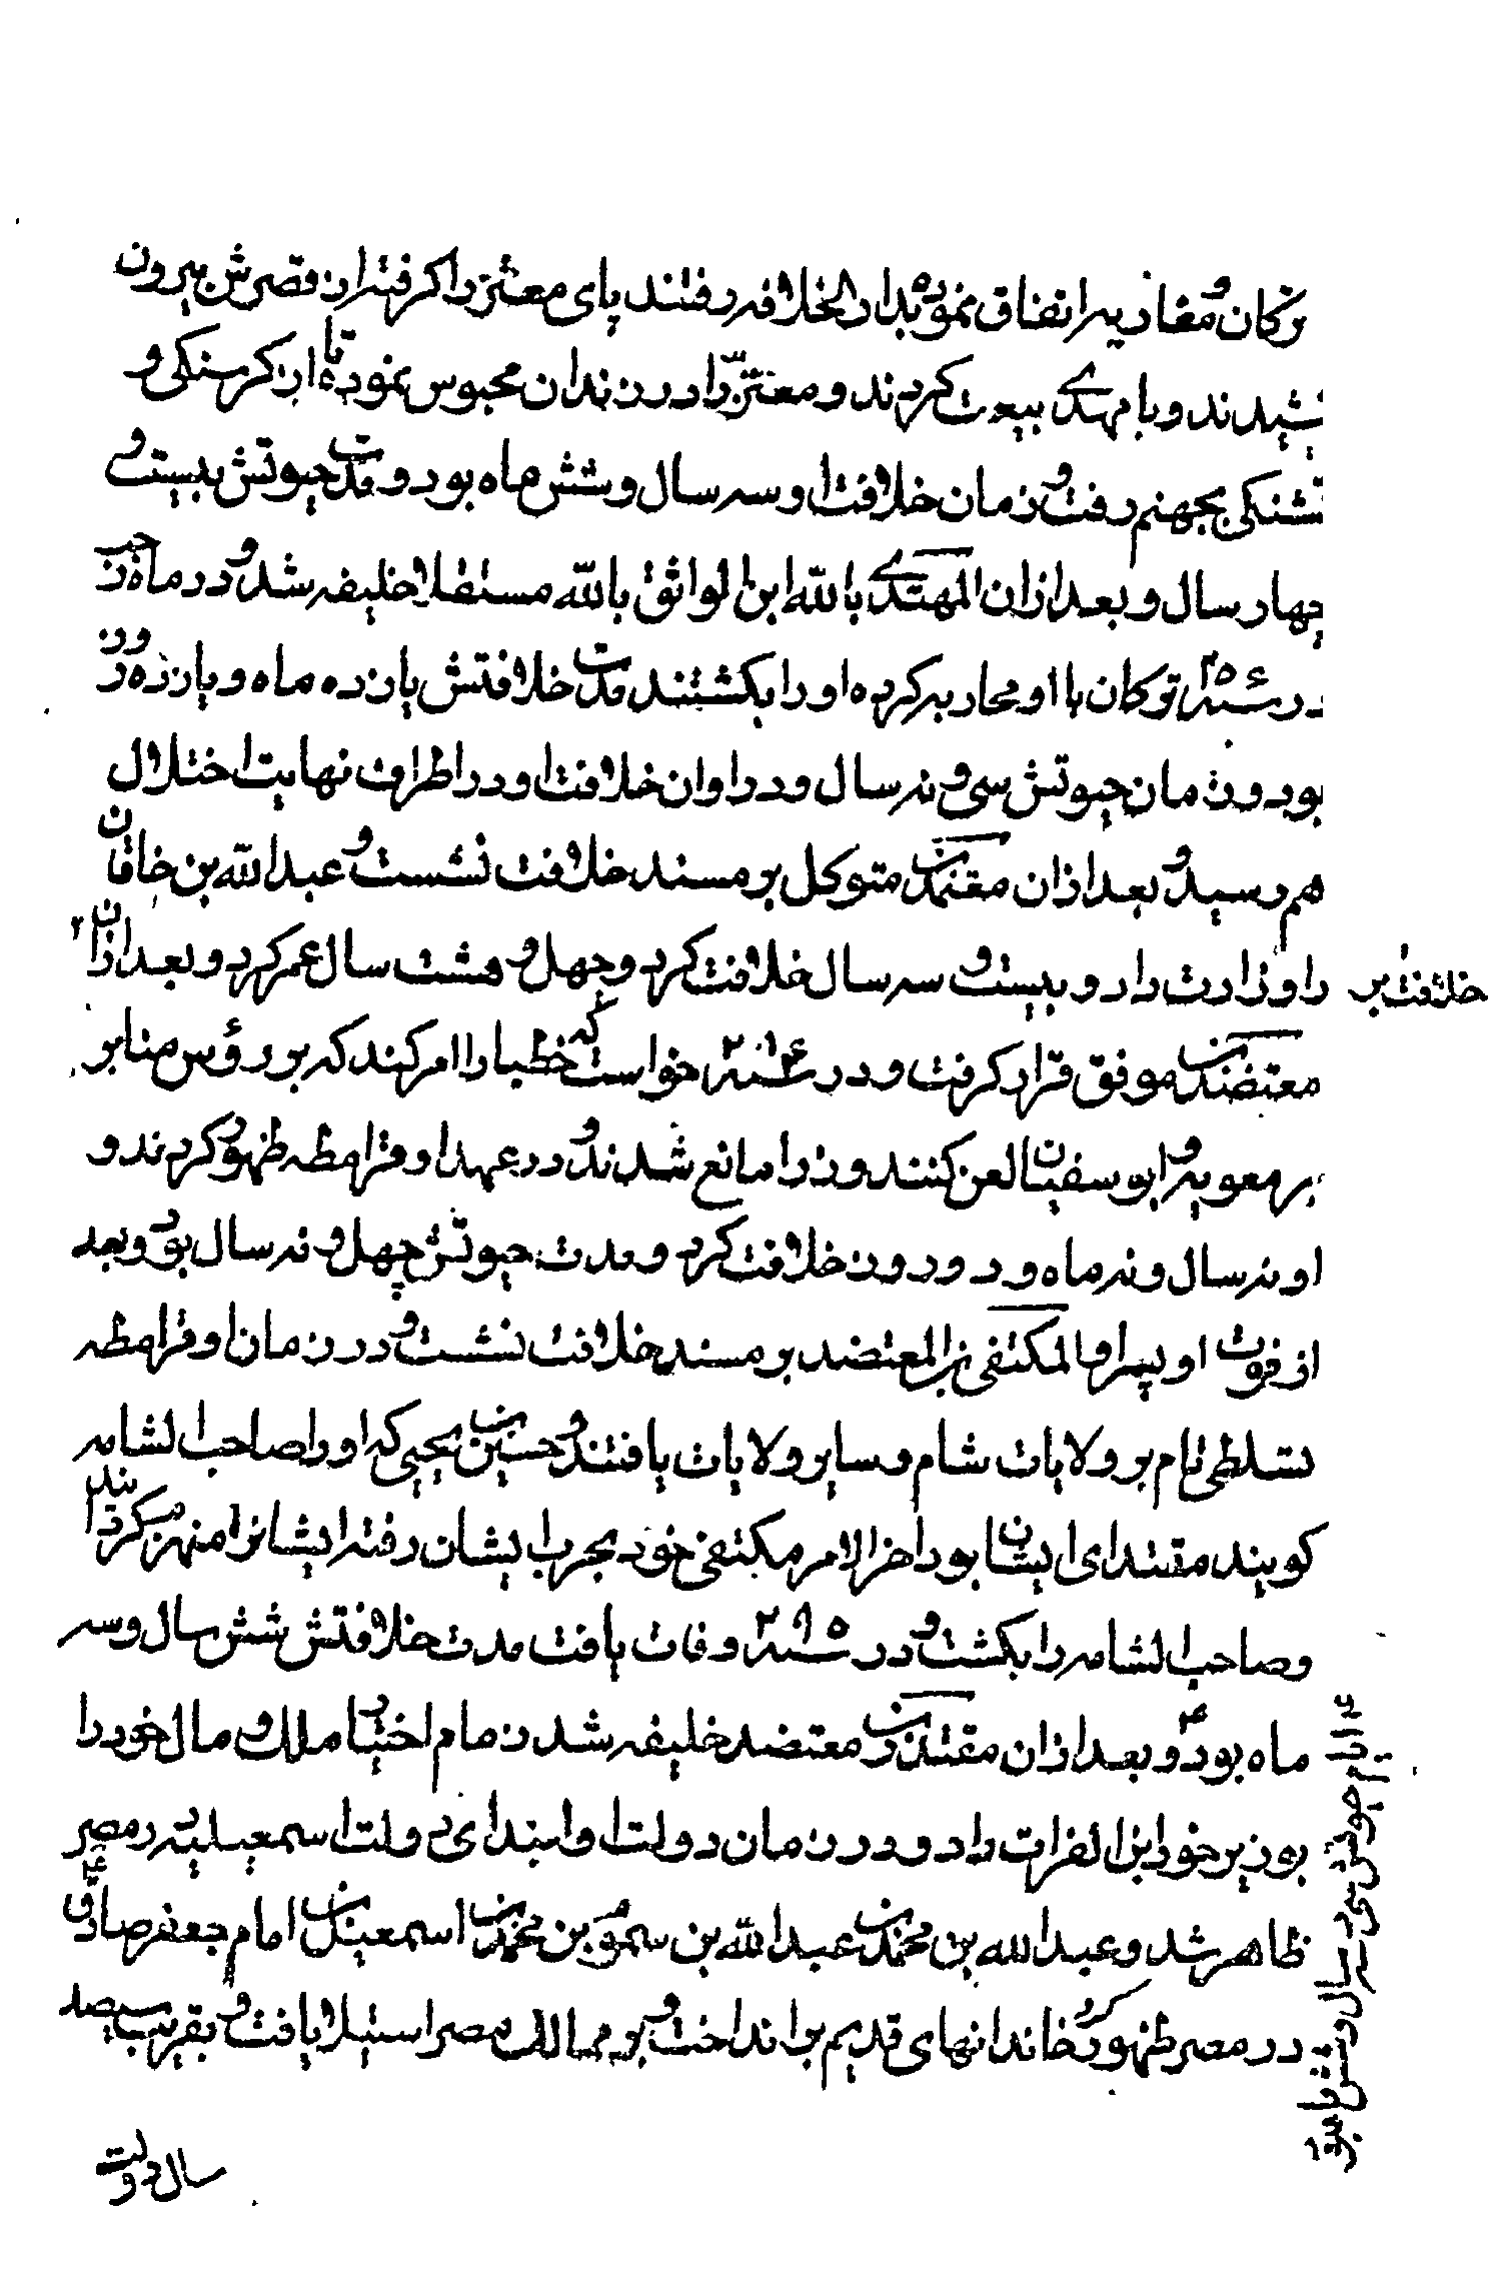 ترکان و مغاربه اتفاق نموده بدار الخلافه رفتند پای معتز را کرفته از قصرش بیرون
کشیدند و با مهتدی بیعت کردند و معتز را در زندان محبوس نموده تا از کرسنکی و
تشنکی بجهنم رفت و زمان خلافت او سه سال و شش ماه بود و مدت حیوتش بیست و
چهار سال و بعد ازان المهتدی بالله ابن الواثق بالله مستقلا خلیفه شد و در ماه رجب
در سنه ۲۵۶ ترکان با او محاربه کرده او را بکشتند مدت خلافتش یازده ماه و پانزده روز
بود و زمان حیوتش سی و نه سال و در اوان خلافت او در اطراف نهایت اختلال
هم رسید و بعد ازان معتمد بن متوکل بر مسند خلافت نشست و عبدالله بن خاقان
را وزارت داد و بیست و سه سال خلافت کرد و چهل و هشت سال عمر کرد و بعد ازان
خلافت بر
معتضد بن موفق قرار کرفت و در سنه خواست که خطبا را امر کند که بر رؤس منابر
بر معویه و ابو سفیان لعن کنند وزرا مانع شدند و در عهد او قرامطه ظهور کردند و
او نه سال و نه ماه و دو روز خلافت کرد و مدت حیوتش چهل و نه سال بود و بعد
از فوت او پسر او المکتفی بن المعتضد بر مسند خلافت نشست و در زمان او قرامطه
تسلطی تام بر ولایات شام و سایر ولایات یافتند و حسین بن یحیی که او را صاحب الشامه
کویند مقتدای ایشان بود اخر الامر مکتفی خود بحرب ایشان رفته ایشانرا منهزم کردانید
و صاحب الشامه را بکشت و در سنه ۲۹۵ وفات یافت مدت خلافتش شش سال و سه
ماه بود و بعد ازان مقتدر بن معتضد خلیفه شد زمام اختیار ملک و مال خود را
بوزیر خود ابن الفرات داد و در زمان دولت او ابتدای دولت اسمعیلیه در مصر
ظاهر شد و عبدالله بن محمد بن عبدالله بن بن محمد بن اسمعیل بن امام جعفر صادق ع
در مصر ظهور کرد خاندانهای قدیم بر انداخت و بر ممالک مصر استیلا یافت و بقریب سیصد
ایام حیوتش سی و سال و شش ماه
سال دولت